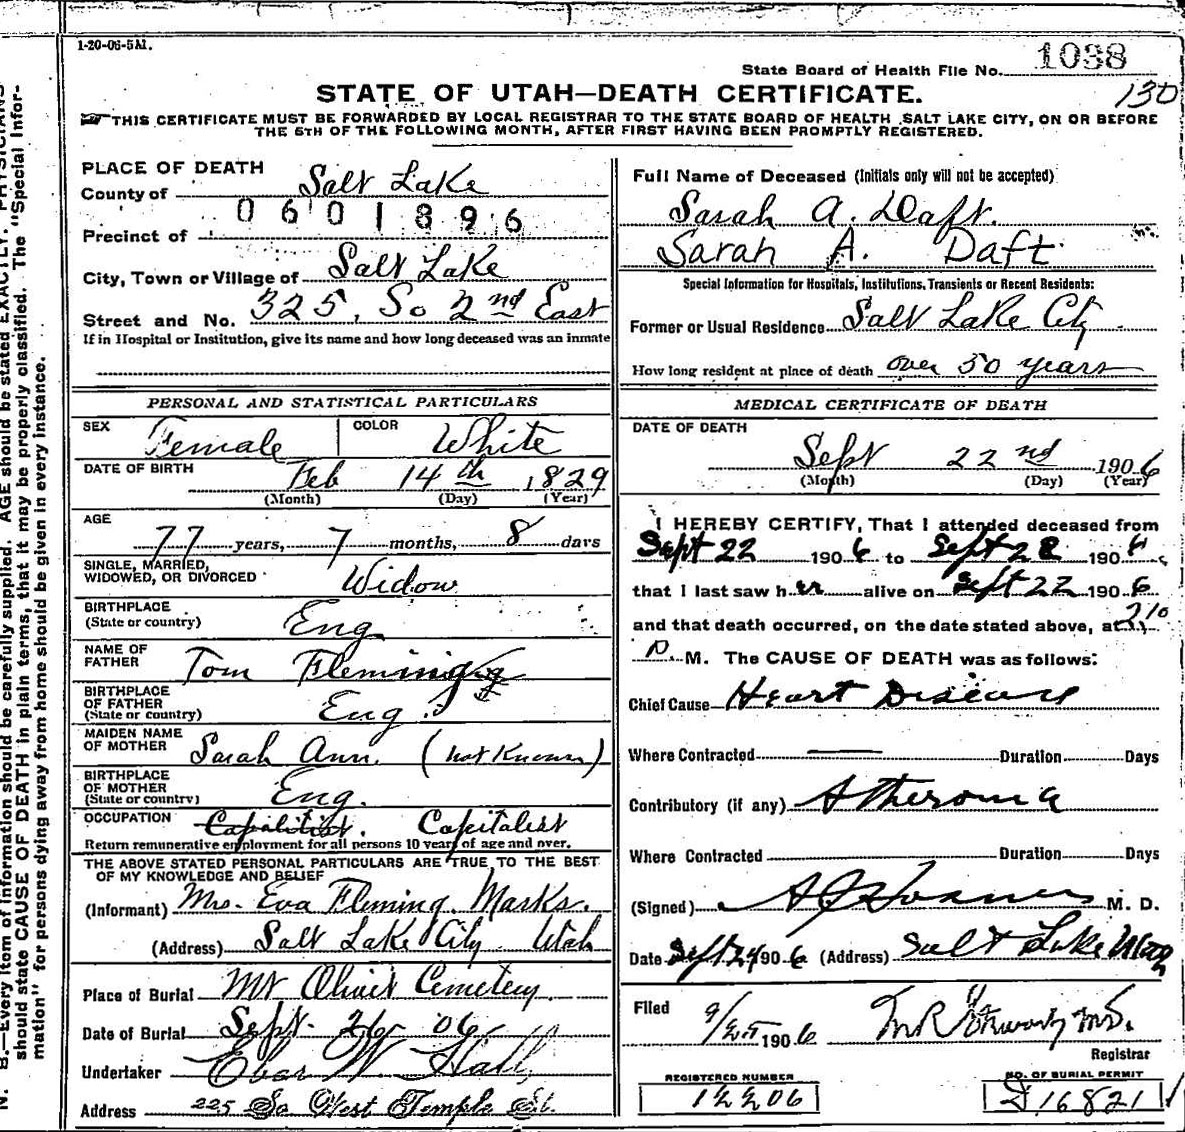 1-20-06-5M.
State Board of Health File No. 1038
130
STATE OF UTAH—DEATH CERTIFICATE.
THIS CERTIFICATE MUST BE FORWARDED BY LOCAL REGISTRAR TO THE STATE BOARD OF HEALTH, SALT LAKE CITY, ON OR BEFORE
THE 5TH OF THE FOLLOWING MONTH, AFTER FIRST HAVING BEEN PROMPTLY REGISTERED.
PLACE OF DEATH
County of Salt Lake
0601896
Precinct of
City, Town or Village of Salt Lake
Street and No. 325, So 2nd East
If in Hospital or Institution, give its name and how long deceased was an inmate
PERSONAL AND STATISTICAL PARTICULARS
SEX Female COLOR White
DATE OF BIRTH Feb 14th 1829
(Month) (Day) (Year)
AGE
77 years, 7 months, 8 days
SINGLE, MARRIED,
WIDOWED, OR DIVORCED Widow
BIRTHPLACE
(State or country) Eng
NAME OF
FATHER Tom Fleming
BIRTHPLACE
OF FATHER
(State or country) Eng.
MAIDEN NAME
OF MOTHER Sarah Ann. (not Known)
BIRTHPLACE
OF MOTHER
(State or country) Eng.
OCCUPATION Capitalist. Capitalist
Return remunerative employment for all persons 10 years of age and over.
THE ABOVE STATED PERSONAL PARTICULARS ARE TRUE TO THE BEST
OF MY KNOWLEDGE AND BELIEF
(Informant) Mrs. Eva Fleming Marks.
(Address) Salt Lake City Utah
Place of Burial Mt Olivet Cemetery.
Date of Burial Sept. 26, 06
Undertaker Eber W. Hall,
Address 225 So West Temple St.
Full Name of Deceased (Initials only will not be accepted)
Sarah A. Daft.
Sarah A. Daft
Special Information for Hospitals, Institutions, Transients or Recent Residents:
Former or Usual Residence Salt Lake City
How long resident at place of death over 50 years
MEDICAL CERTIFICATE OF DEATH
DATE OF DEATH
Sept 22nd 1906
(Month) (Day) (Year)
I HEREBY CERTIFY, That I attended deceased from
Sept 22 1906 to Sept 22 1906
that I last saw her alive on Sept 22 1906
and that death occurred, on the date stated above, at 210
P. M. The CAUSE OF DEATH was as follows:
Chief Cause Heart Disease
Where Contracted Duration Days
Contributory (if any) Atheroma
Where Contracted Duration Days
(Signed) M. D.
Date Sept 24 1906 (Address) Salt Lake Utah
Filed 9/25 1906
Registrar
REGISTERED NUMBER
12206
NO. OF BURIAL PERMIT
D16821
N. B.—Every item of information should be carefully supplied. AGE should be stated EXACTLY. PHYSICIANS
should state CAUSE OF DEATH in plain terms, that it may be properly classified. The "Special Infor-
mation" for persons dying away from home should be given in every instance.